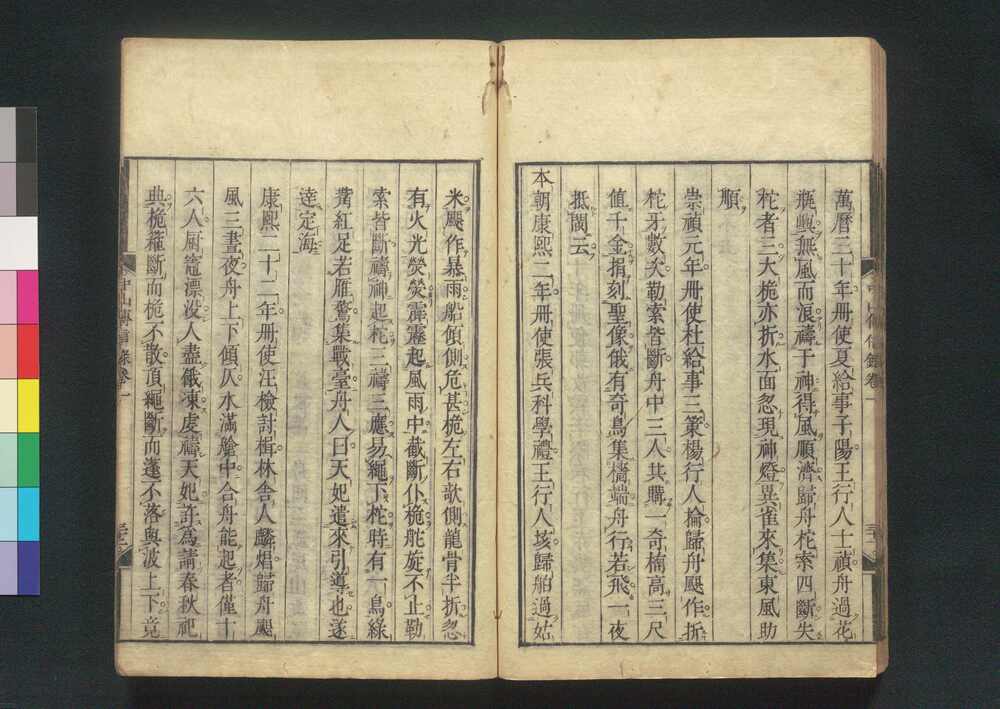 萬曆三十年冊使夏給事子陽王行人士禎舟過花
瓶嶼無風而浪禱于神得風順濟歸舟柁索四斷失
柁者三大桅亦折水面忽現神燈異雀來集東風助
順
崇禎元年冊使杜給事三策楊行人掄歸舟颶作折
柁牙數次勒索皆斷舟中三人共購一奇楠高三尺
值千金捐刻聖像俄有奇鳥集檣端舟行若飛一夜
抵閩云
本朝康熙二年冊使張兵科學禮王行人垓歸舶過姑
米颶作暴雨船傾側危甚桅左右欹側龍骨半折忽
有火光熒熒霹靂起風雨中截斷仆桅舵旋不止勒
索皆斷禱神起柁三禱三應易繩下柁時有一鳥綠
觜紅足若雁鶩集戰臺舟人曰天妃遣來引導也遂
達定海
康熙二十二年冊使汪檢討楫林舍人麟焻歸舟颶
風三晝夜舟上下傾仄水滿艙中合舟能起者僅十
六人厨竈漂没人盡餓凍虔禱天妃許為請春秋祀
典桅箍斷而桅不散頂繩斷而篷不落與波上下竟
中山傳信錄卷一
中山傳信錄卷一